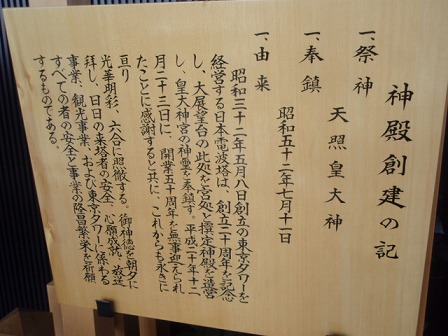 神殿創建の記
一、祭神
天照皇大神
一、奉鎮
昭和五十二年七月十一日
一、由来
昭和三十二年五月八日創立の東京タワーを
経営する日本電波塔は、創立二十周年を記念
し、大展望台の此処を宮処と撰定神殿を造営
し、皇大神宮の神霊を奉鎮す。平成二十年十二
月二十三日に、開業五十周年を無事迎えられ
たことに感謝すると共に、これからも永きに
亘り
光華明彩、六合に照徹する。御神徳を朝夕に
拝し、日日の来塔者の安全、心願成就、放送
事業、観光事業、および東京タワーに係わる
すべての者の安全と事業の隆昌繁栄を祈願
するものである。